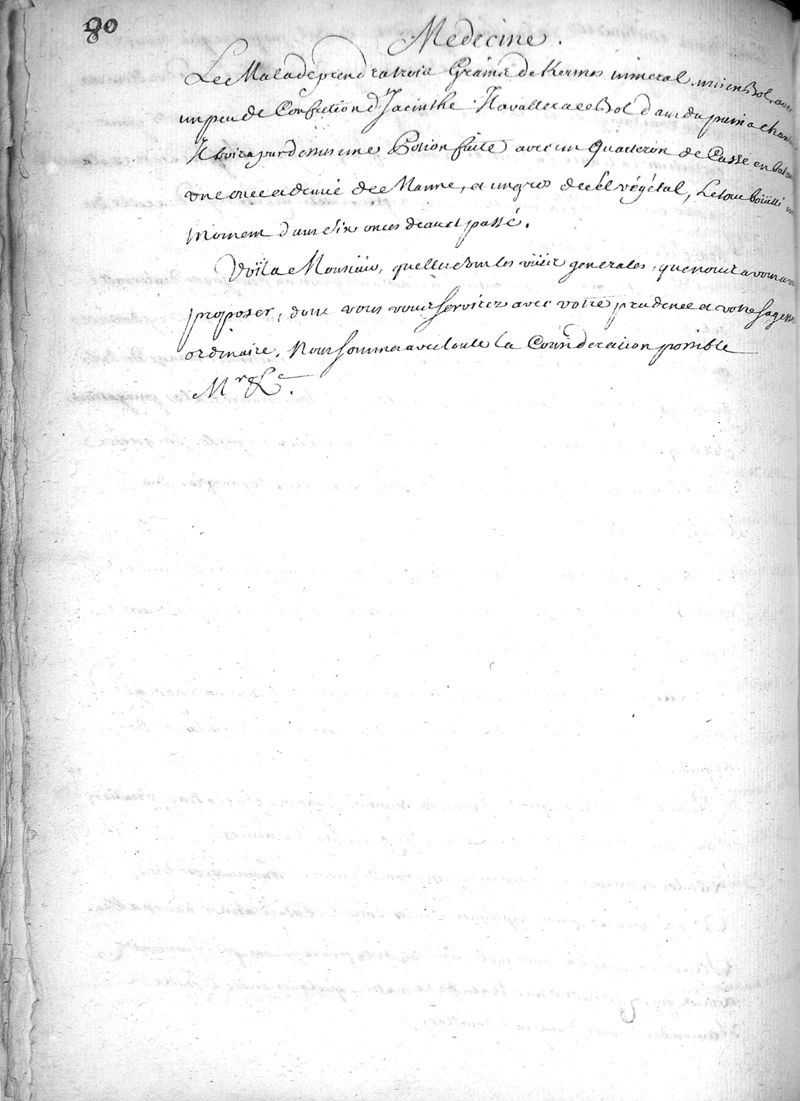 80
Medecine.
Le Malade prendra trois Grains de Kermes mineral mis en Bol avec
un peu de Confection d'Jacinthe. Il avallera ce Bol dans du pain a chanter
Il boira par dessus une Potion faite avec un Quarteron de Casse en baton
une once et demie de Manne, et un gros de sel végétal, Le tout boüilli un
moment dans six onces d'eau et passé.
Voila Monsieur, quelles sont les vües generales, que nous avons a vous
proposer, dont vous vous servirez avec votre prudence et votre sagesse
ordinaire. Nous sommes avec toute la Consideration possible
Mr &c.